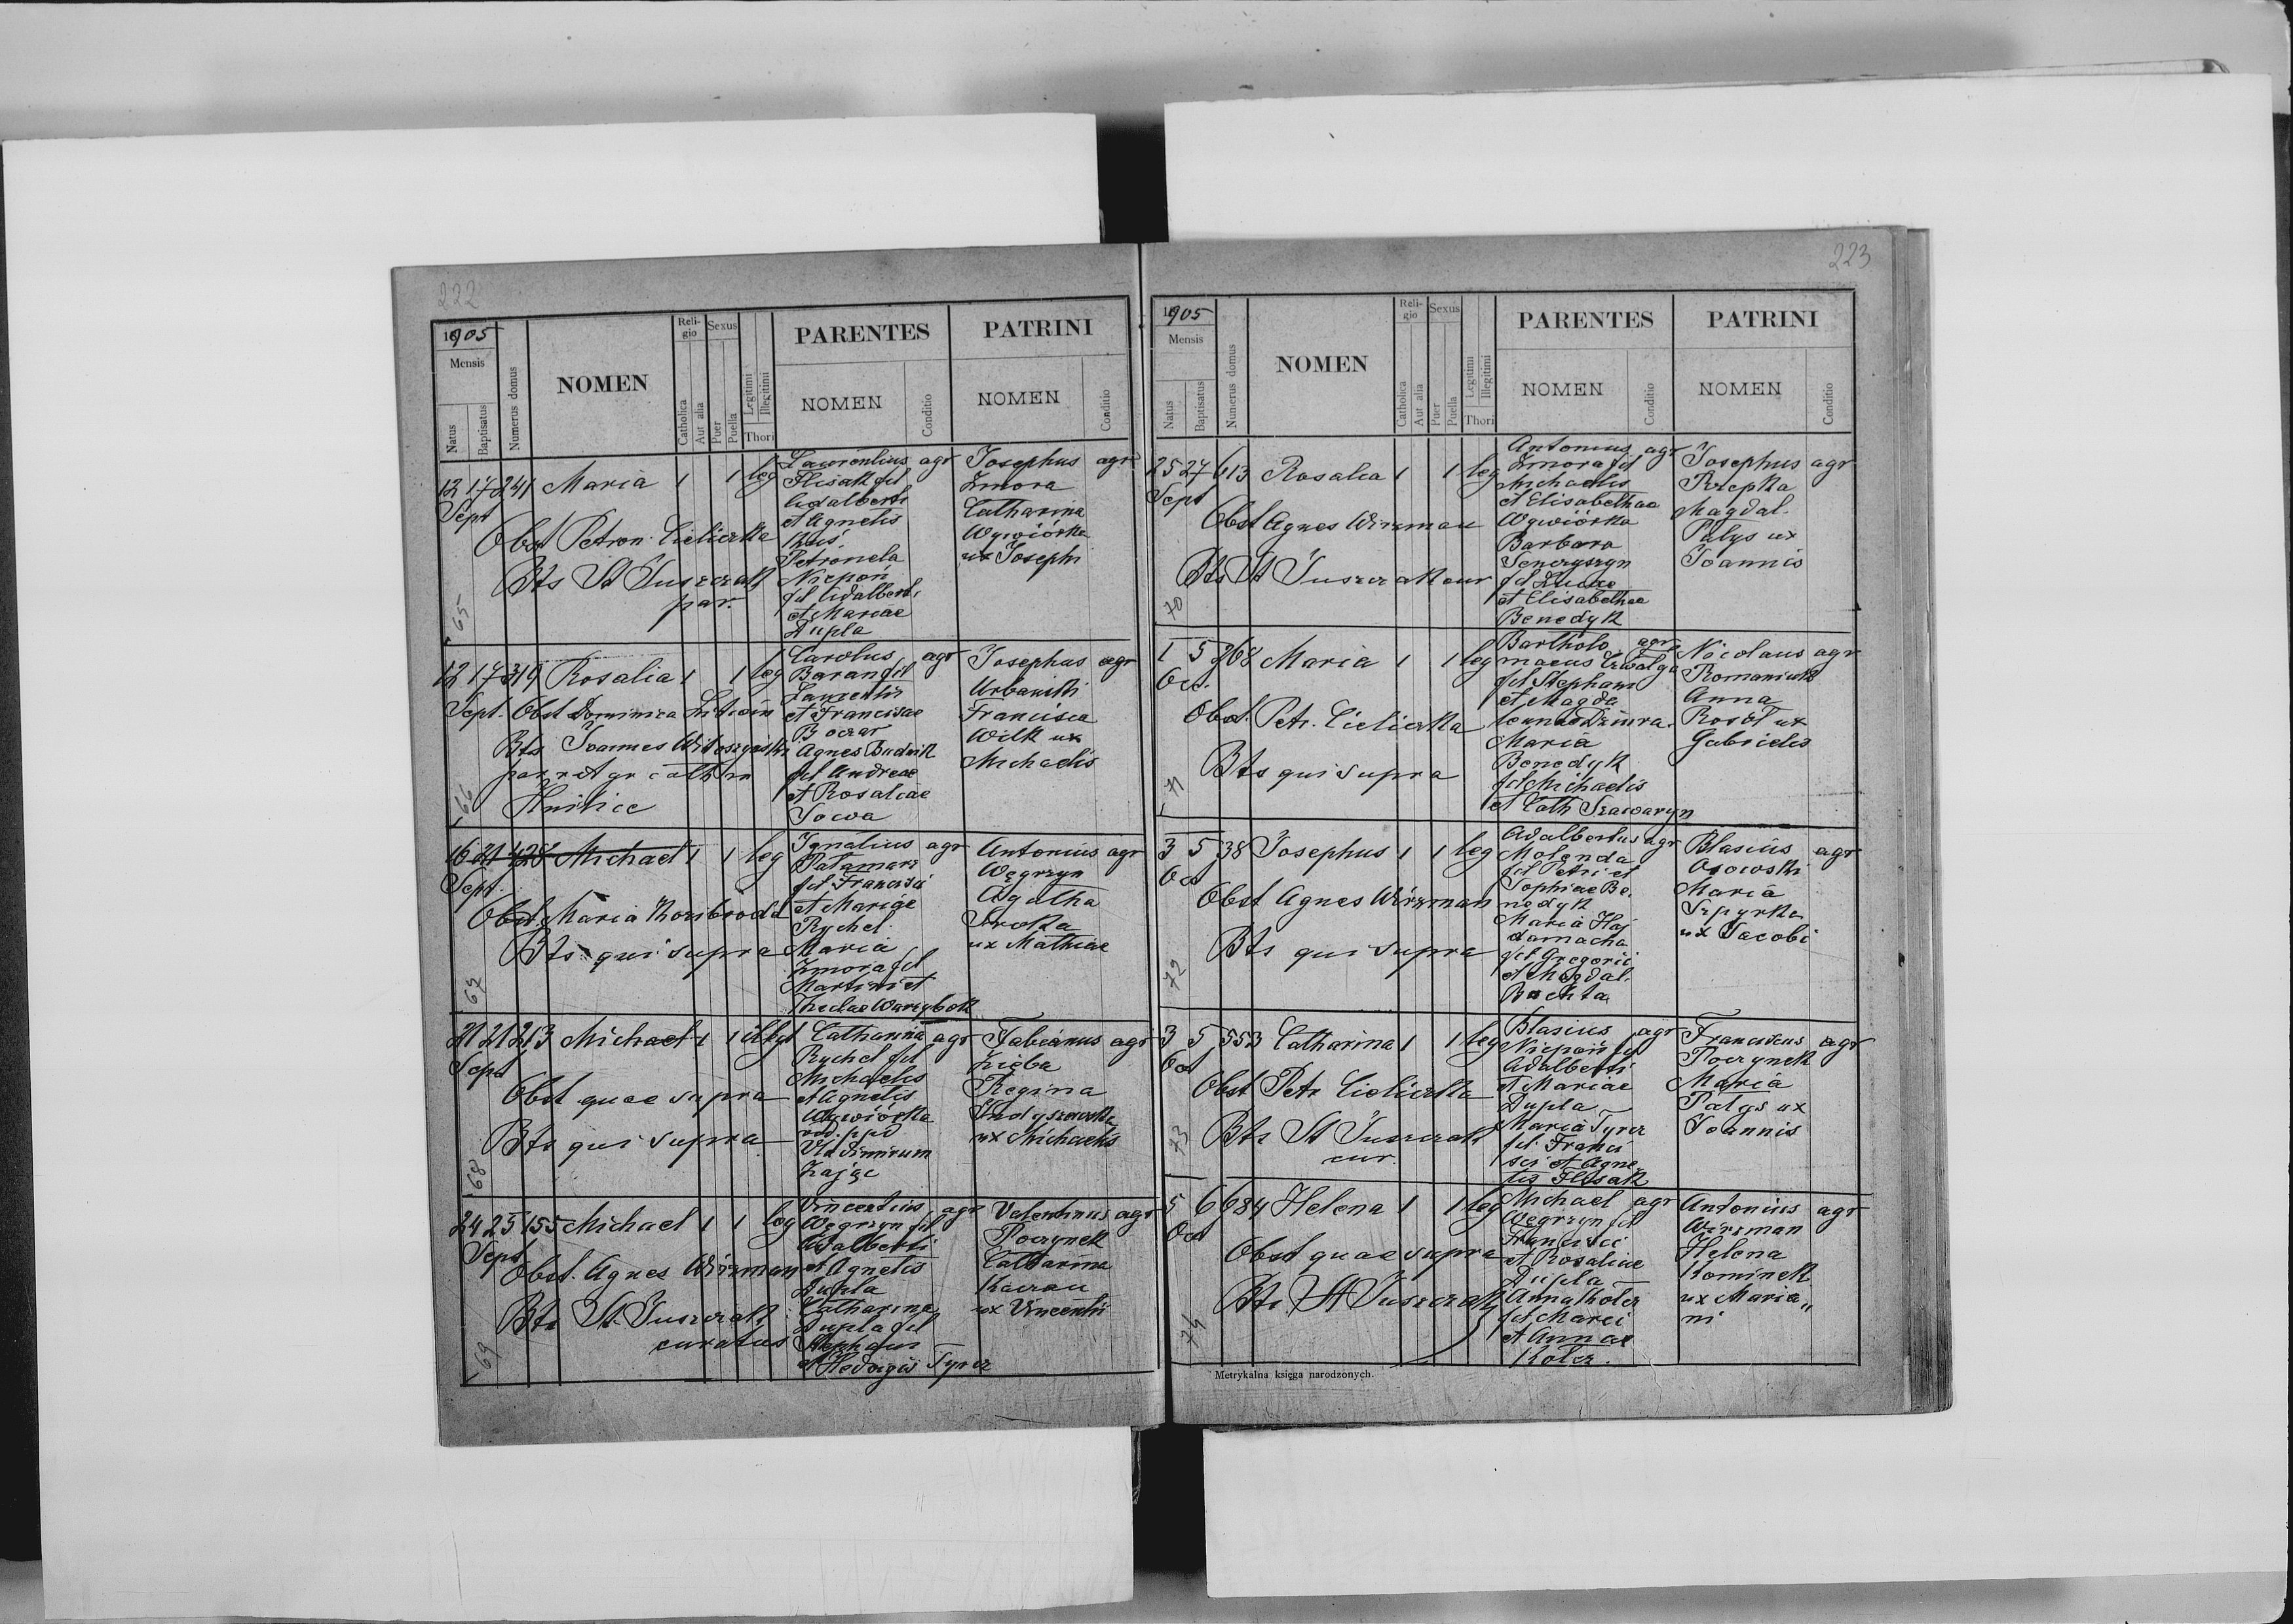 222
1905
Mensis
Natus
Baptisatus
Numerus domus
NOMEN
Reli-
gio
Catholica
Aut alia
Sexus
Puer
Puella
Legitimi
Illegitimi
Thori
PARENTES
NOMEN
Conditio
PATRINI
NOMEN
Conditio
12 17 241 Maria 1 1 leg
Sept
Obst Petron. Cieliczka
Bts St Juszczak
par.
65
Laurentius agr
Flisak fil
Adalberti
et Agnetis
Kuś
Petronela
Niepoń
fil Adalberti
et Mariae
Dupla
Josephus agr
Zmora
Catharina
Wywiórka
ux Josephi
12 17 319 Rosalia 1 1 leg
Sept. Obst Dominica
Bts Joannes
par r gr cath in
Hnilice
66
Carolus agr
Baran fil
Laurentii
et Franciscae
Boczar
Agnes Budnik
fil Andreae
et Rosaliae
Sowa
Josephus agr
Urbański
Francisca
Wilk ux
Michaelis
16 21 428 Michael 1 1 leg
Sept.
Obst Maria
Bts qui supra
67
Ignatius agr
Patamarz
fil Francisci
et Mariae
Rychel
Maria
Zmora fil
Martini et
Theclae Warzybok
Antonius agr
Węgrzyn
Agatha
Sroka
ux Mathiae
21 21 213 Michael 1 1 illegt
Sept
Obst quae supra
Bts qui supra
68
Catharina agr
Rychel fil
Michaelis
et Agnetis
Wywiórka
Vladimirum
Zając
Fabianus agr
Zięba
Regina
ux Michaelis
24 25 155 Michael 1 1 leg
Sept
Obst. Agnes Wirzman
Bts St. Juszczak
curatus
69
Vincentius agr
Węgrzyn fil
Adalberti
et Agnetis
Dupla
Catharina
Dupla fil
Stephani
et Hedvigis Tyrcz
Valentinus agr
Poczynek
Catharina
Kaczan
ux Vincentii
223
1905
Mensis
Natus
Baptisatus
Numerus domus
NOMEN
Reli-
gio
Catholica
Aut alia
Sexus
Puer
Puella
Legitimi
Illegitimi
Thori
PARENTES
NOMEN
Conditio
PATRINI
NOMEN
Conditio
25 27 613 Rosalia 1 1 leg
Sept
Obst Agnes Wirzman
Bts St Juszczak cur
70
Antonius agr
Zmora fil
Michaelis
et Elisabethae
Wywiórka
Barbara
Senczyszyn
fil Lucae
et Elisabethae
Benedyk
Josephus agr
Rzepka
Magdal.
Patys ux
Joannis
1 5 368 Maria 1 1 leg
Oct.
Obst. Petr. Cieliczka
Bts qui supra
71
Bartholo agr
maeus
fil Stephani
et Magda
lenae
Maria
Benedyk
fil Michaelis
et Cath Szawaryn
Nicolaus agr
Romaniuk
Anna
Rosół ux
Gabrielis
3 5 38 Josephus 1 1 leg
Oct
Obst Agnes Wirzman
Bts qui supra
72
Adalbertus agr
Molenda
fil Petri et
Sophiae Be
nedyk
Maria Haj
damacha
fil Gregorii
et Magdal.
Bachta
Blasius agr
Osowski
Maria
Szpyrka
ux Jacobi
3 5 553 Catharina 1 1 leg
Oct
Obst Petr Cieliczka
Bts St Juszczak
cur.
73
Blasius agr
Niepoń fil
Adalberti
et Mariae
Dupla
Maria Tyrcz
fil. Franci
sci et Agne
tis Flisak
Franciscus agr
Poczynek
Maria
Patys ux
Joannis
5 6 684 Helena 1 1 leg
Oct
Obst quae supra
Bts St Juszczak
74
Michael agr
Węgrzyn fil
Francisci
et Rosaliae
Dupla
Anna Kotcz
fil Marci
et Annae
Kotcz.
Antonius agr
Wirzman
Helena
Kominek
ux Maria„
ni
Metrykalna księga narodzonych.